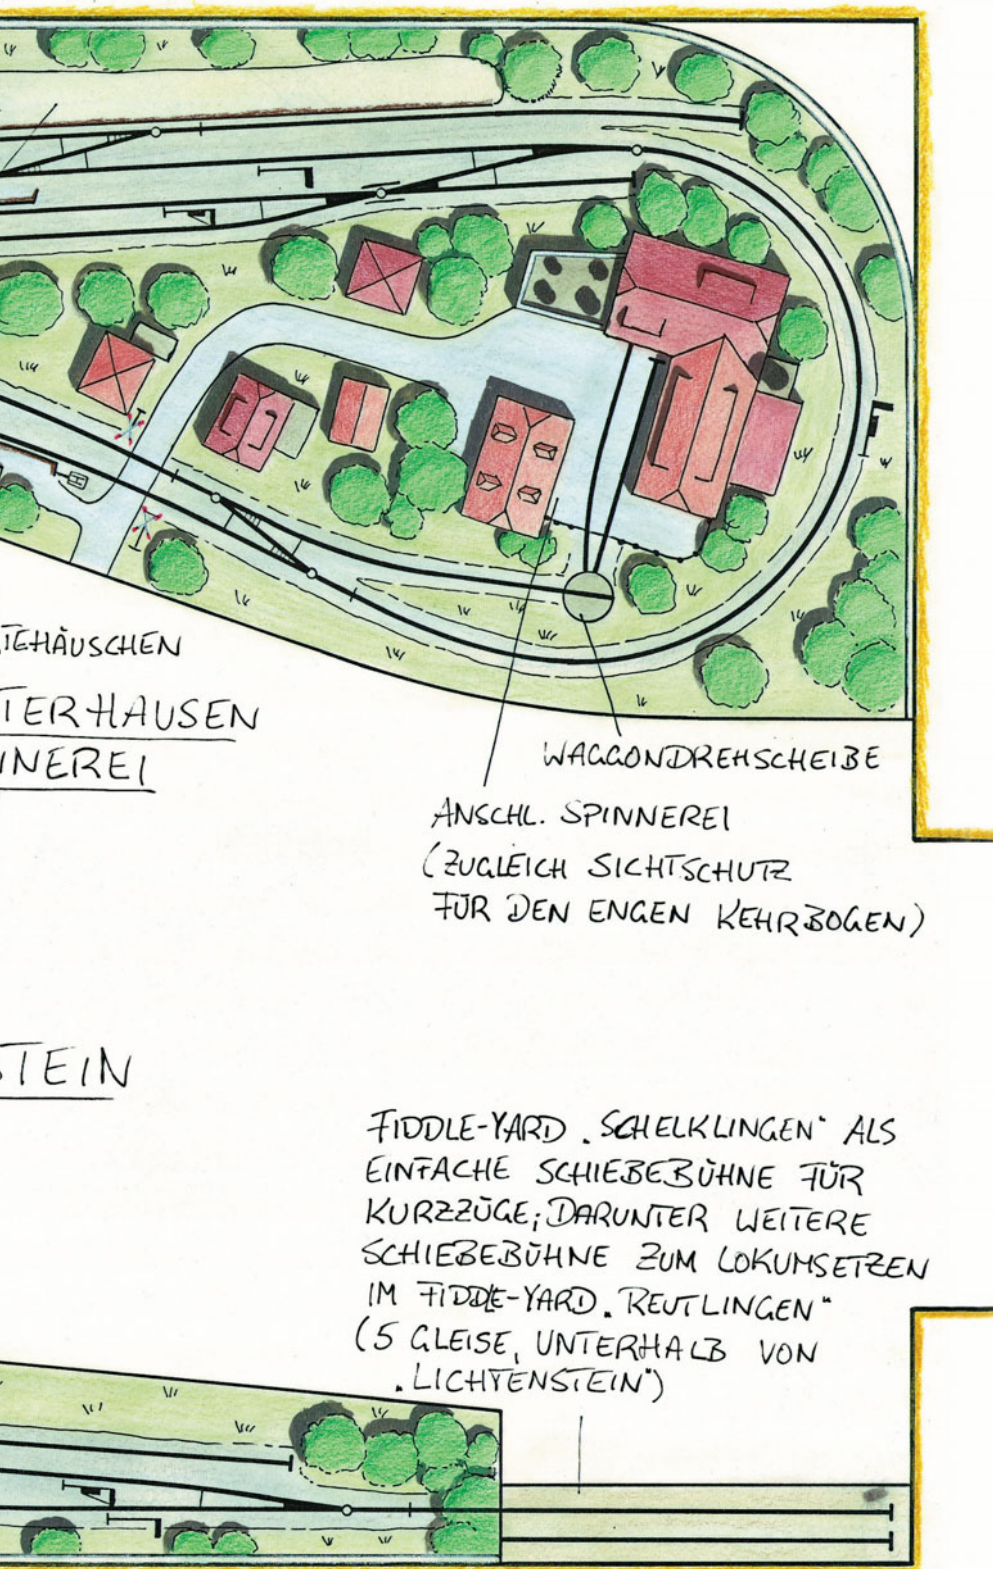 TEHÄUSCHEN
TERHAUSEN
NEREI
WAGGONDREHSCHEIBE
ANSCHL. SPINNEREI
(ZUGLEICH SICHTSCHUTZ
FÜR DEN ENGEN KEHRBOGEN)
STEIN
FIDDLE-YARD „SCHELKLINGEN“ ALS
EINFACHE SCHIEBEBÜHNE FÜR
KURZZÜGE; DARUNTER WEITERE
SCHIEBEBÜHNE ZUM LOKUMSETZEN
IM FIDDLE-YARD „REUTLINGEN“
(5 GLEISE, UNTERHALB VON
„LICHTENSTEIN“)